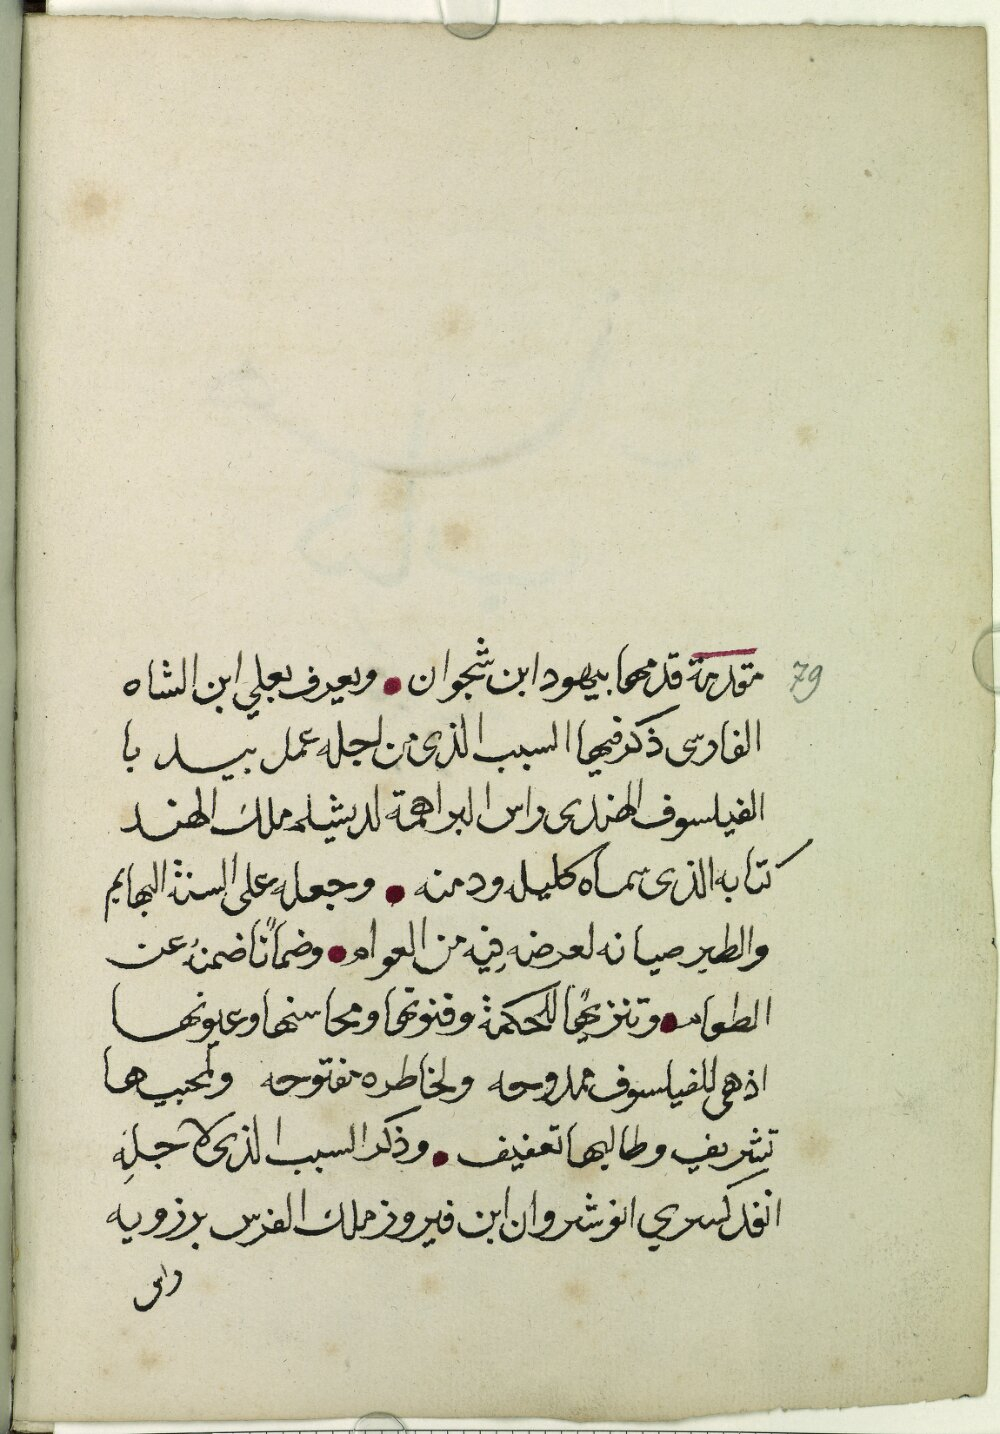 مقدمة قدمها بيهود ابن شجوان • ويعرف بعلي ابن الشاه
79
الفارسى ذكر فيها السبب الذى من اجله عمل بيد با
الفيلسوف الهندى راس البراهمة لدبشيلم ملك الهند
كتابه الذى سماه كليله ودمنه • وجعله على السنة البهايم
والطير صيانه لعرضه فيه من العوام • وضمانًا ضمنهُ عن
الطوام • وتنزيهًا للحكمة وفنونها ومحاسنها وعيونها
اذ هى للفيلسوف ممدوحه ولخاطره مفتوحه ولمحبيها
تشريف وطالبها تعفيف • وذكر السبب الذى لاجلهِ
انفد كسري انوشروان ابن فيروز ملك الفرس برزويه
راس